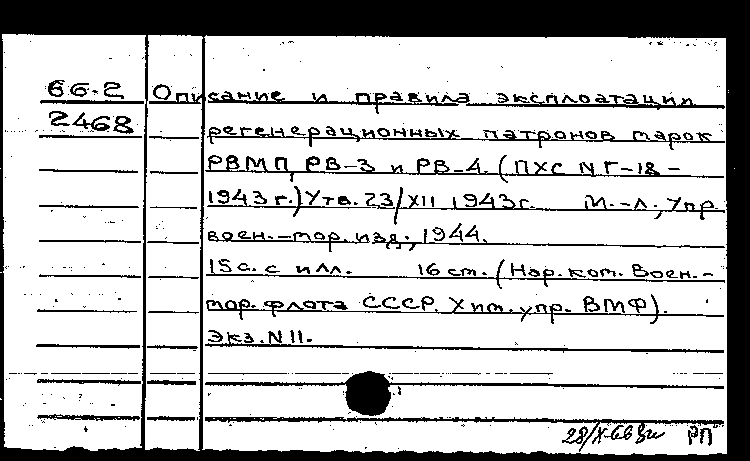 66-2 Описание и правила эксплоатации
2468 регенерационных патронов марок
РВМП, РВ-3 и РВ-4. (ПХС № Г-18-
1943 г.) Утв. 23/XII 1943г. М.-Л., Упр.
воен.-мор. изд., 1944.
15 с. с илл. 16 см. (Нар. ком. Воен.-
мор. флота СССР. Хим. упр. ВМФ).
Экз. № 11.
28/X-66 РП